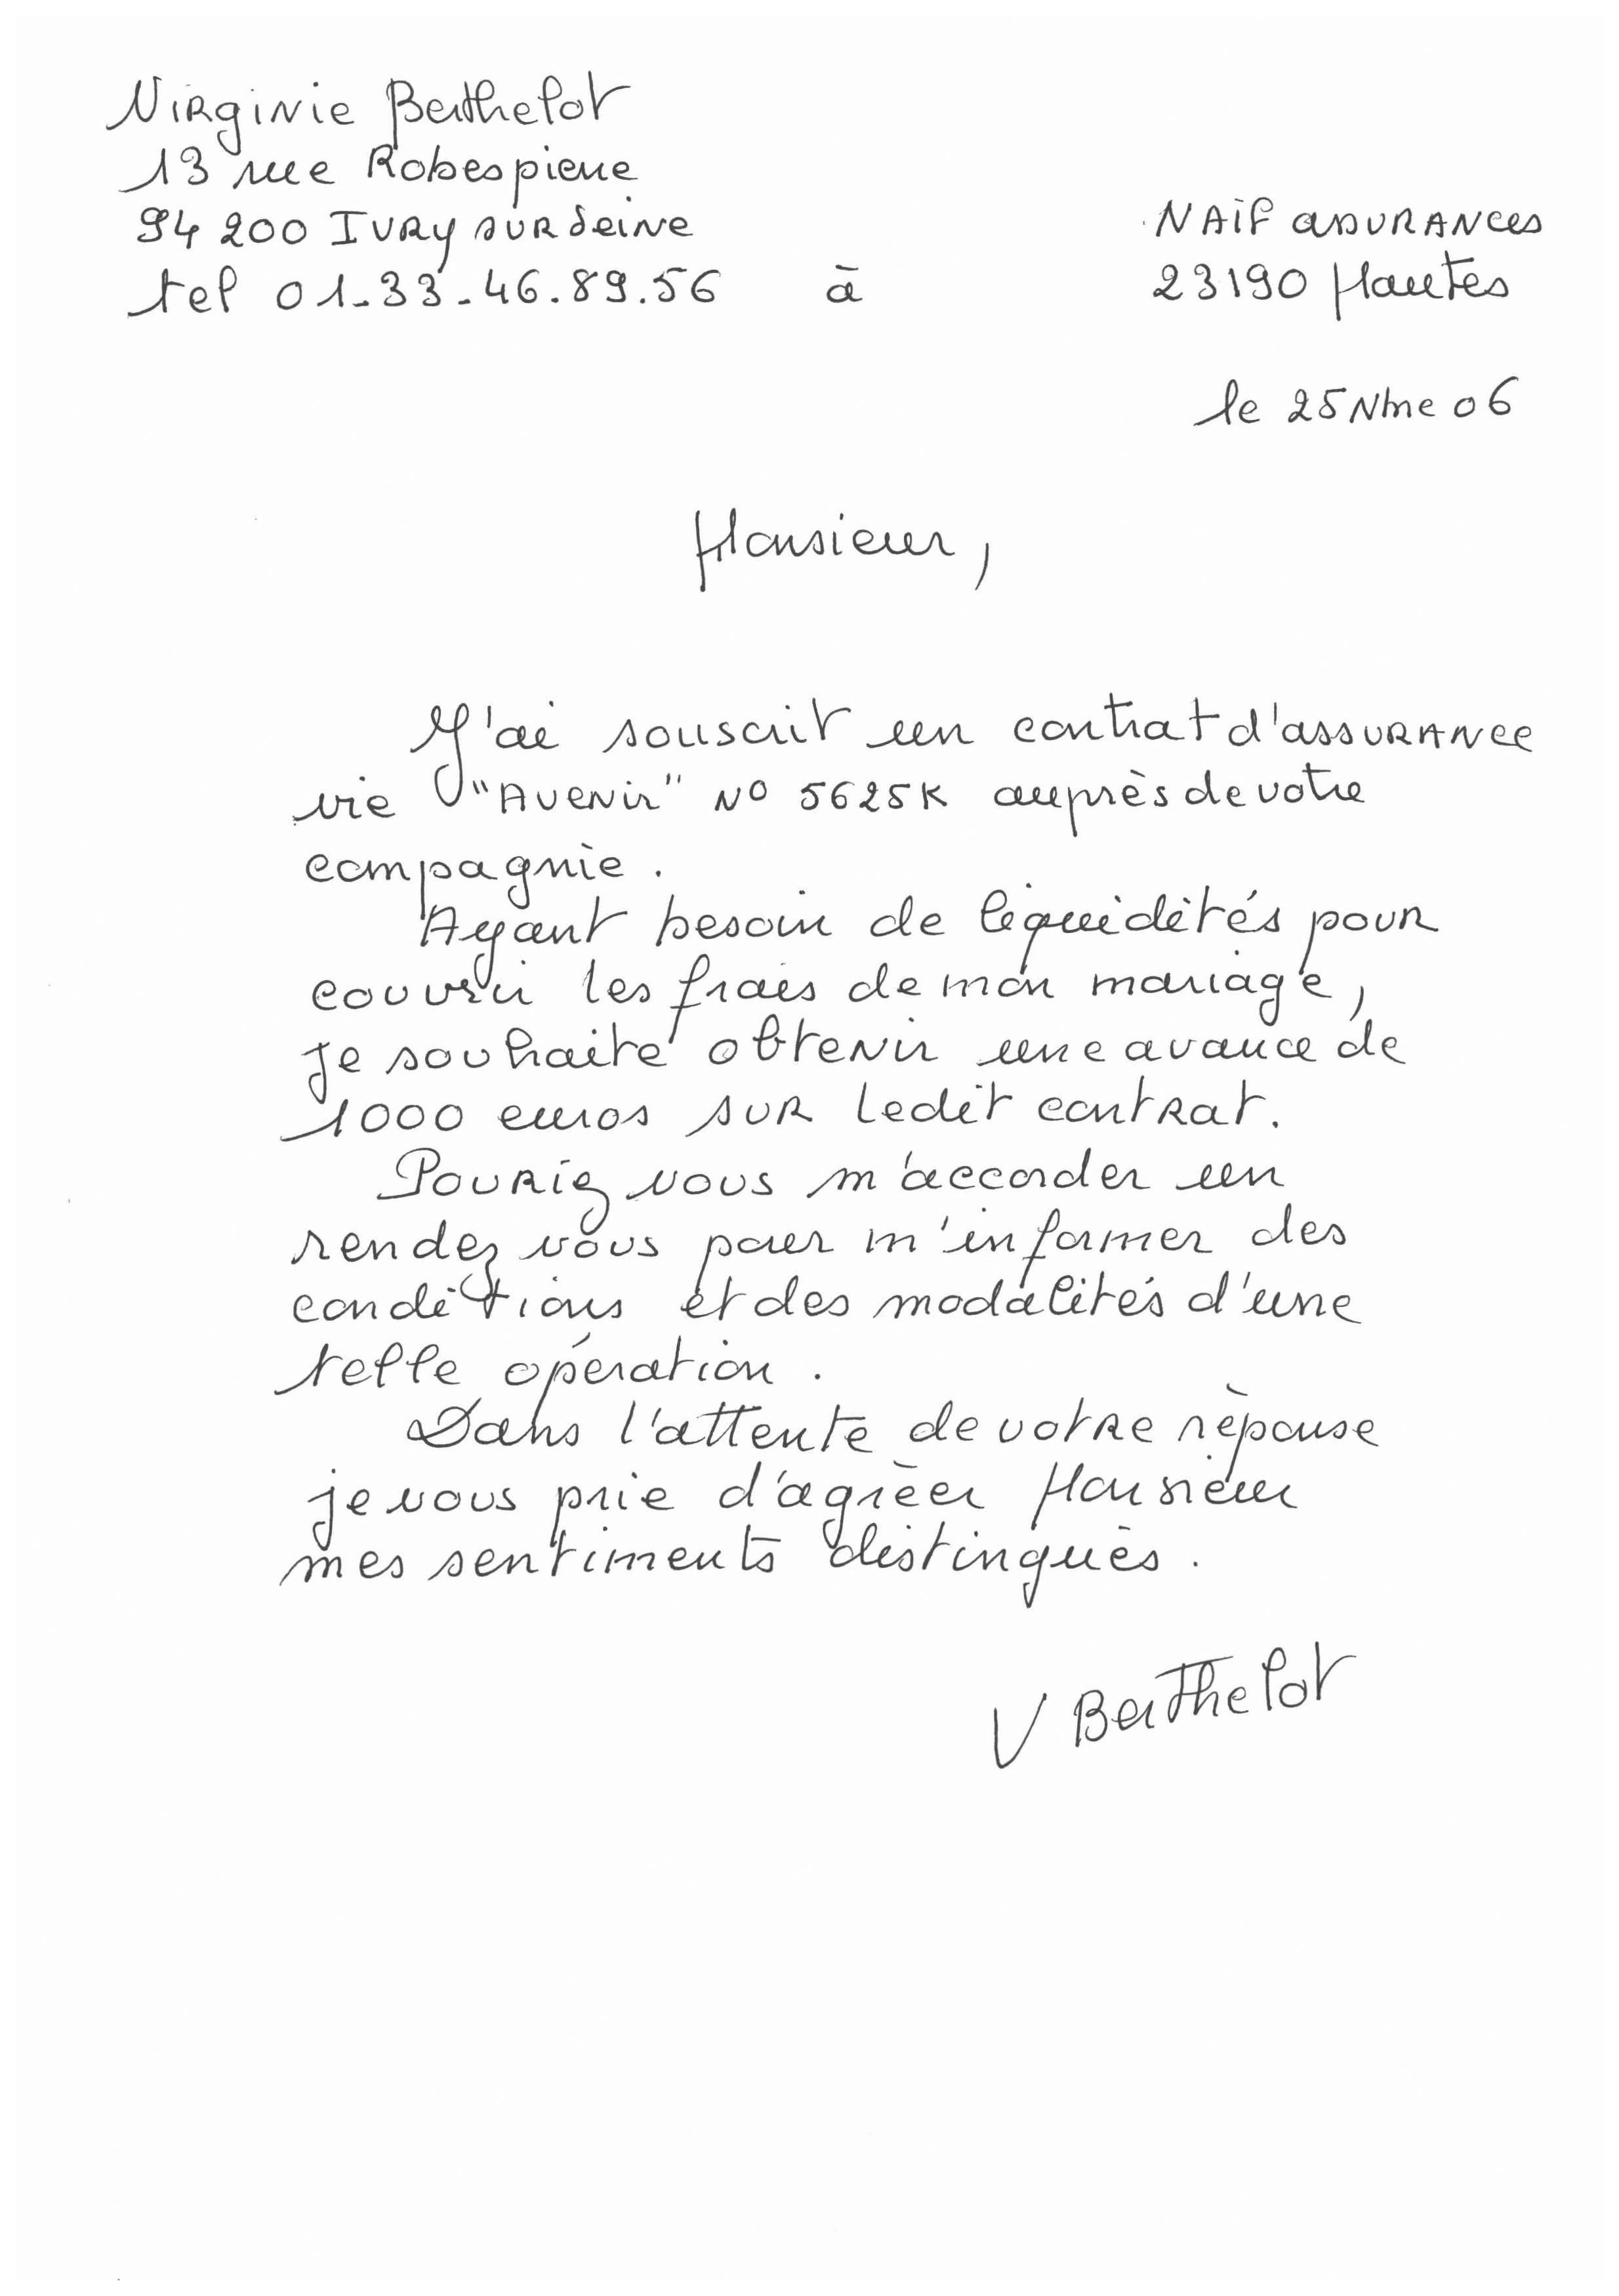 Virginie Berthelot
13 rue Robespierre
94 200 Ivry sur Seine
tel 01-33-46.89.56 à
NAIF assurances
23190 Mautes
le 25 Nbre 06
Monsieur,
J'ai souscrit un contrat d'assurance
vie "Avenir" No 5625K auprès de votre
compagnie.
Ayant besoin de liquidités pour
couvrir les frais de mon mariage,
je souhaite obtenir une avance de
1000 euros sur ledit contrat.
Pouriez vous m'accorder un
rendez vous pour m'informer des
conditions et des modalités d'une
telle opération.
Dans l'attente de votre réponse
je vous prie d'agréer Monsieur
mes sentiments distingués.
V Berthelot